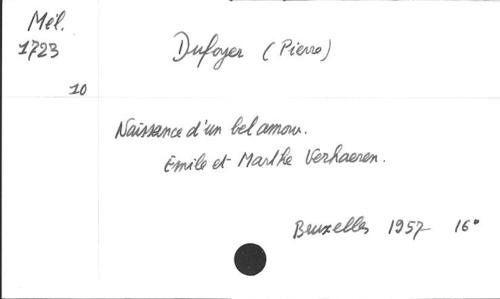 Mél.
1723
10
Dufoyer (Pierre)
Naissance d'un bel amour.
Emile et Marthe Verhaeren.
Bruxelles 1957 16°